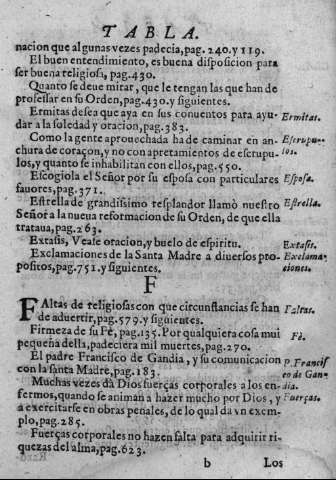 TABLA.
nacion que algunas vezes padecia, pag. 240. y 119.
El buen entendimiento, es buena disposicion para
ser buena religiosa, pag. 430.
Quanto se deue mirar, que le tengan las que han de
professar en su Orden, pag. 430. y siguientes.
Ermitas desea que aya en sus conuentos para ayu-
dar a la soledad y oracion, pag. 383.
Ermitas.
Como la gente aprouechada ha de caminar en an-
chura de coraçon, y no con apretamientos de escrupu-
los, y quanto se inhabilitan con ellos, pag. 550.
Escrupu-
los.
Escogiola el Señor por su esposa con particulares
fauores, pag. 371.
Esposa.
Estrella de grandissimo resplandor llamò nuestro
Señor a la nueua reformacion de su Orden, de que ella
trataua, pag. 263.
Estrella.
Extasis, Vease oracion, y buelo de espiritu.
Extasis.
Exclamaciones de la Santa Madre a diuersos pro-
positos, pag. 751. y siguientes.
Exclama-
ciones.
F
FAltas de religiosas con que circunstancias se han
de aduertir, pag. 579. y siguientes.
Faltas.
Firmeza de su Fè, pag. 135. Por qualquiera cosa mui
pequeña della, padeciera mil muertes, pag. 270.
Fè.
El padre Francisco de Gandia, y su comunicacion
con la santa Madre, pag. 183.
P. Francis
co de Gan-
dia.
Muchas vezes dà Dios fuerças corporales a los en-
fermos, quando se animan a hazer mucho por Dios, y
a exercitarse en obras penales, de lo qual da vn exem-
plo, pag. 285.
Fuerças.
Fuerças corporales no hazen falta para adquirir ri-
quezas del alma, pag. 623.
b Los